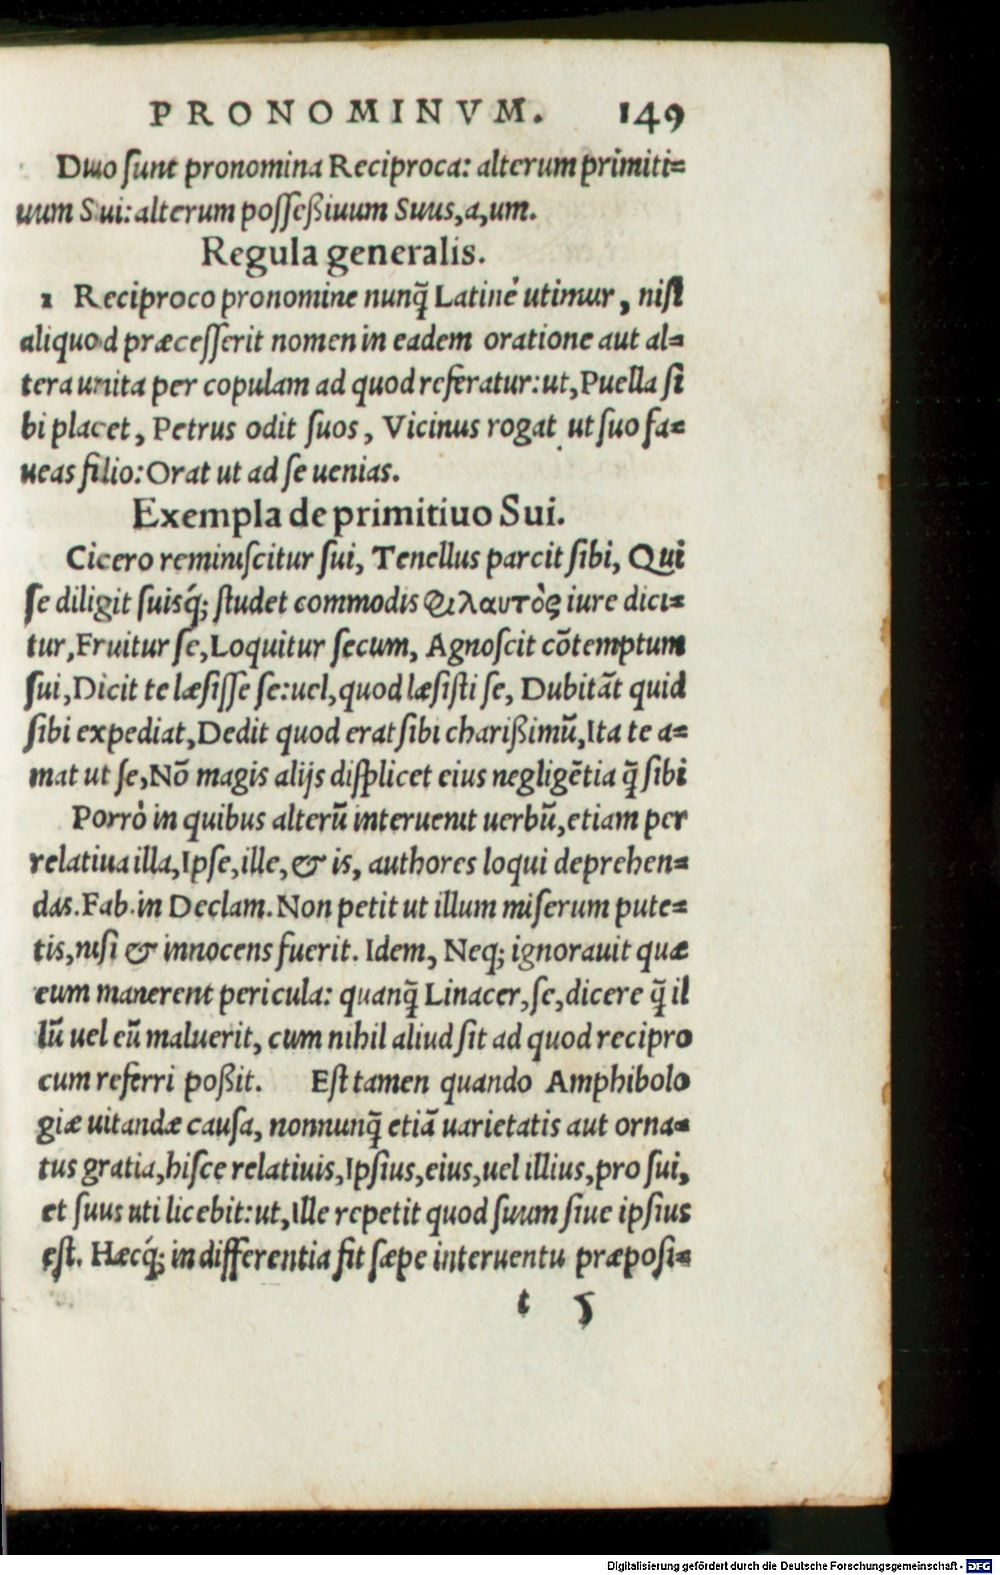 PRONOMINVM. 149
Duo ſunt pronomina Reciproca: alterum primiti=
uum Sui: alterum poſſeßiuum Suus, a, um.
Regula generalis.
1 Reciproco pronomine nunq̃ Latinè utimur, niſi
aliquod præceſſerit nomen in eadem oratione aut al=
tera unita per copulam ad quod referatur: ut, Puella ſi
bi placet, Petrus odit ſuos, Vicinus rogat ut ſuo fa=
ueas filio: Orat ut ad ſe uenias.
Exempla de primitiuo Sui.
Cicero reminiſcitur ſui, Tenellus parcit ſibi, Qui
ſe diligit ſuisq́; ſtudet commodis Φιλαυτὸς iure dici=
tur, Fruitur ſe, Loquitur ſecum, Agnoſcit cõtemptum
ſui, Dicit te læſiſſe ſe: uel, quod læſiſti ſe, Dubitãt quid
ſibi expediat, Dedit quod erat ſibi charißimũ, Ita te a=
mat ut ſe, Nõ magis alijs diſplicet eius negligẽtia q̃ ſibi
Porrò in quibus alterũ interuenit uerbũ, etiam per
relatiua illa, Ipſe, ille, & is, authores loqui deprehen=
das. Fab. in Declam. Non petit ut illum miſerum pute=
tis, niſi & innocens fuerit. Idem, Neq; ignorauit quæ
eum manerent pericula: quanq̃ Linacer, ſe, dicere q̃ il
lũ uel eũ maluerit, cum nihil aliud ſit ad quod recipro
cum referri poßit. Eſt tamen quando Amphibolo
giæ uitandæ cauſa, nonnunq̃ etiã uarietatis aut orna=
tus gratia, hiſce relatiuis, Ipſius, eius, uel illius, pro ſui,
et ſuus uti licebit: ut, Ille repetit quod ſuum ſiue ipſius
eſt. Hæcq́; in differentia fit ſæpe interuentu præpoſi=
t 5
Digitalisierung gefördert durch die Deutsche Forschungsgemeinschaft - DFG